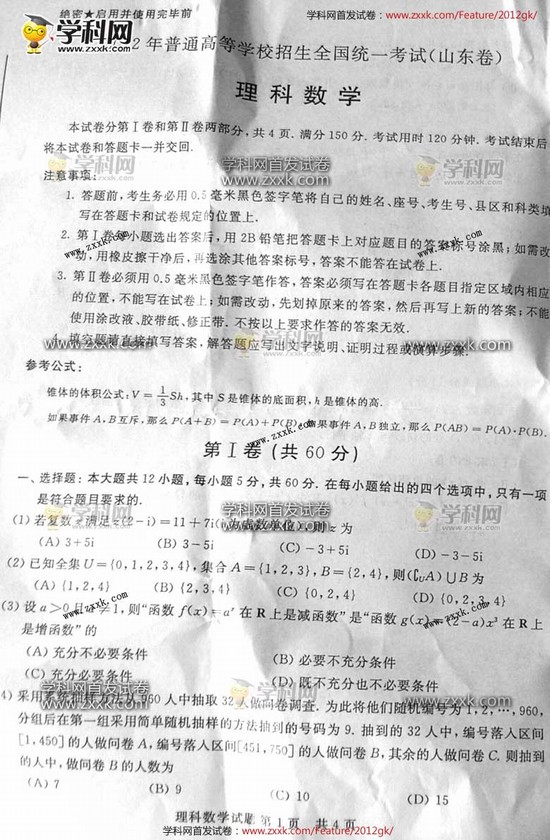 绝密★启用并使用完毕前
学科网首发试卷: www.zxxk.com/Feature/2012gk/
2年普通高等学校招生全国统一考试(山东卷)
学科网
www.zxxk.com
理科数学
本试卷分第Ⅰ卷和第Ⅱ卷两部分,共4页.满分150分.考试用时120分钟.考试结束后
将本试卷和答题卡一并交回.
学科网首发试卷
www.zxxk.com
学科网
注意事项:
1. 答题前,考生务必用0.5毫米黑色签字笔将自己的姓名、座号、考生号、县区和科类填
写在答题卡和试卷规定的位置上.
2. 第Ⅰ卷每小题选出答案后,用2B铅笔把答题卡上对应题目的答案标号涂黑;如需改
动,用橡皮擦干净后,再选涂其他答案标号,答案不能答在试卷上.
3. 第Ⅱ卷必须用0.5毫米黑色签字笔作答,答案必须写在答题卡各题目指定区域内相应
的位置,不能写在试卷上;如需改动,先划掉原来的答案,然后再写上新的答案;不能
使用涂改液、胶带纸、修正带.不按以上要求作答的答案无效.
4. 填空题请直接填写答案,解答题应写出文字说明、证明过程或演算步骤.
学科网首发试卷
www.zxxk.com
学科网
www.zxxk.com
学科网首发试卷
www.zxxk.com
参考公式:
锥体的体积公式:V=1/3Sh,其中S是锥体的底面积,h是锥体的高.
如果事件A,B互斥,那么P(A+B)=P(A)+P(B);如果事件A,B独立,那么P(AB)=P(A)·P(B).
第Ⅰ卷(共60分)
一、选择题:本大题共12小题,每小题5分,共60分.在每小题给出的四个选项中,只有一项
是符合题目要求的.
学科网
学科网首发试卷
www.zxxk.com
学科网
(1) 若复数z满足z(2-i)=11+7i(i为虚数单位),则z为
(A) 3+5i (B) 3-5i (C) -3+5i (D) -3-5i
(2) 已知全集U={0,1,2,3,4},集合A={1,2,3},B={2,4},则(∁UA)∪B为
(A) {1,2,4} (B) {2,3,4} (C) {0,2,4} (D) {0,2,3,4}
(3) 设a>0且a≠1,则“函数f(x)=aˣ在R上是减函数”是“函数g(x)=(2-a)x³在R上
是增函数”的
(A) 充分不必要条件 (B) 必要不充分条件
(C) 充分必要条件 (D) 既不充分也不必要条件
学科网首发试卷
www.zxxk.com
学科网
学科网首发试卷
www.zxxk.com
4) 采用系统抽样方法从960人中抽取32人做问卷调查.为此将他们随机编号为1,2,…,960,
分组后在第一组采用简单随机抽样的方法抽到的号码为9.抽到的32人中,编号落入区间
[1,450]的人做问卷A,编号落入区间[451,750]的人做问卷B,其余的人做问卷C.则抽到
的人中,做问卷B的人数为
(A) 7 (B) 9 (C) 10 (D) 15
理科数学试题 第1页 共4页
学科网首发试卷: www.zxxk.com/Feature/2012gk/